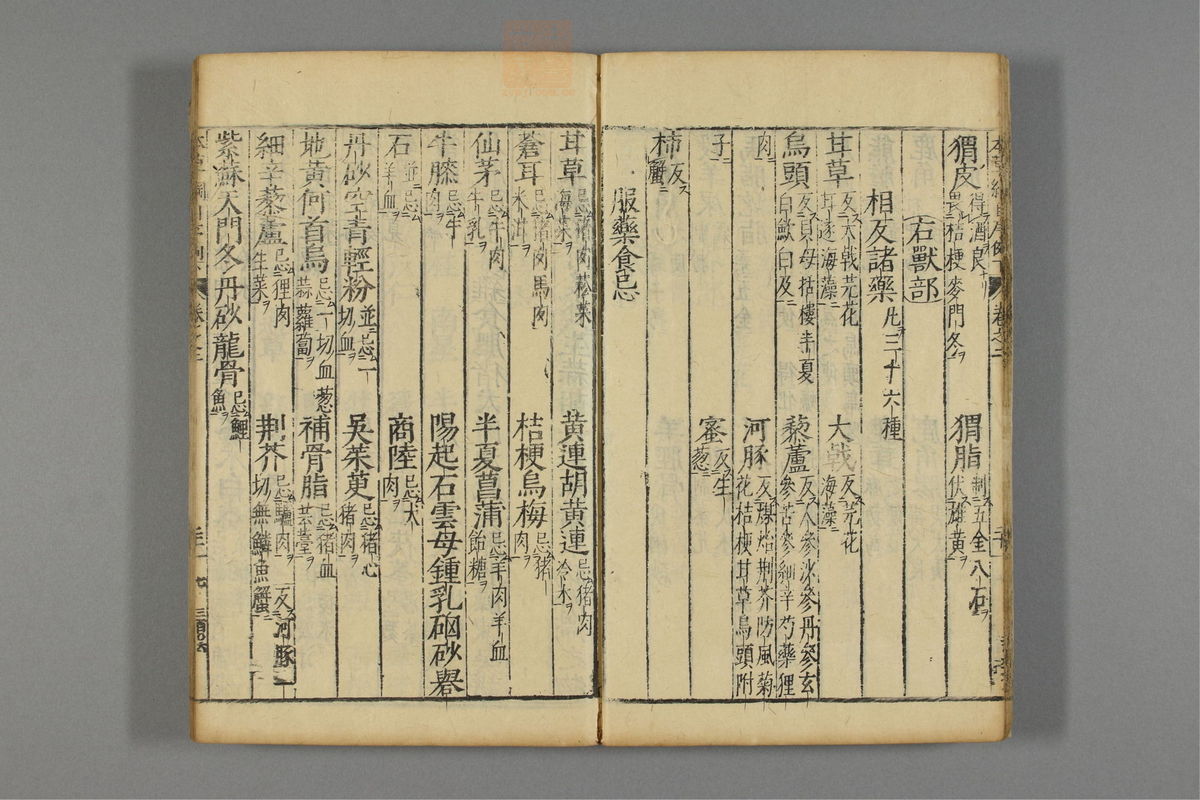 猬皮得酒良畏桔梗麥門冬　猬脂制五金八石伏雄黃
右獸部
相反諸藥凡三十六種
甘草反大戟芫花甘遂海藻　大戟反芫花海藻
烏頭反貝母栝樓半夏白蘞白及　藜蘆反人參沙參丹參玄參苦參細辛芍藥貍
肉　河豚反煤炲荊芥防風菊花桔梗甘草烏頭附
子　蜜反生葱
柿反蟹
服藥食忌
甘草忌猪肉菘菜海菜　黃連胡黃連忌猪肉冷水
蒼耳忌猪肉馬肉米泔　桔梗烏梅忌猪肉
仙茅忌牛肉牛乳　半夏菖蒲忌羊肉羊血飴糖
牛膝忌牛肉　陽起石雲母鍾乳硇砂礜
石並忌羊血　商陸忌犬肉
丹砂空青輕粉並忌一切血　吳茱萸忌猪心猪肉
地黃何首烏忌一切血葱蒜蘿蔔　補骨脂忌猪血芸薹
細辛藜蘆忌狸肉生菜　荊芥忌驢肉反河豚一切無鱗魚蟹
紫蘇天門冬丹砂龍骨忌鯉魚